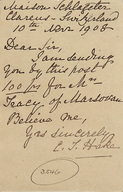 Maison Schlafsten
Clarens - Switzerland
10th Novr 1906
Dear Sir,
I am sending
you by this post
100 frs for Mrs
Tracy, of Marsovan
Believe me,
Yrs sincerely
E. S. Hake
3546